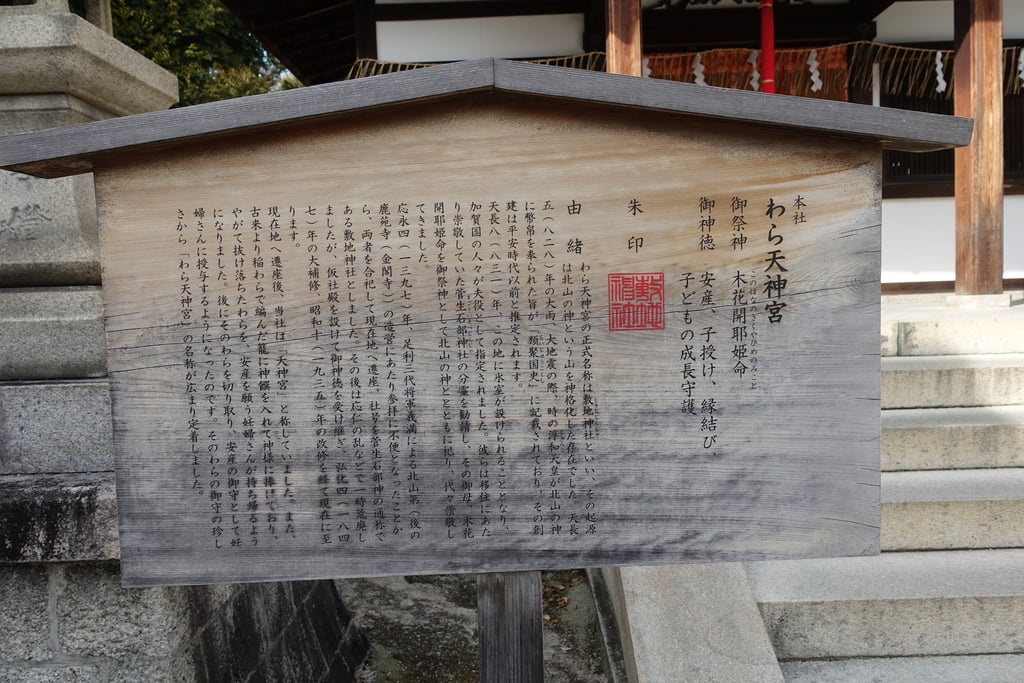 本社
わら天神宮
御祭神　木花開耶姫命
このはなのさくやひめのみこと
御神徳　安産、子授け、縁結び、
子どもの成長守護
朱印
敷地神社
由緒　わら天神宮の正式名称は敷地神社といい、その起源
は北山の神という山を神格化した存在でした。天長
五（八二八）年の大雨、大地震の際、時の淳和天皇が北山の神
に幣帛を奉られた旨が「類聚国史」に記載されており、その創
建は平安時代以前と推定されます。
天長八（八三一）年、この地に氷室が設けられることとなり、
加賀国の人々が夫役として指定されました。彼らは移住にあた
り崇敬していた菅生石部神社の分霊を勧請し、その御母、木花
開耶姫命を御祭神として北山の神とともに祀り、代々崇敬し
てきました。
応永四（一三九七）年、足利三代将軍義満による北山第（後の
鹿苑寺（金閣寺））の造営にあたり参拝に不便となったことか
ら、両者を合祀して現在地へ遷座、社号を菅生石部神の通称で
ある敷地神社としました。その後は応仁の乱などで一時荒廃し
ましたが、仮社殿を設けて御神徳を受け継ぎ、弘化四（一八四
七）年の大補修、昭和十（一九三五）年の改修を経て現在に至
ります。
現在地へ遷座後、当社は「天神宮」と称していました。また、
古来より稲わらで編んだ籠に神饌を入れて神様に捧げており、
やがて抜け落ちたわらを、安産を願う妊婦さんが持ち帰るよう
になりました。後にそのわらを切り取り、安産の御守として妊
婦さんに授与するようになったのです。そのわらの御守の珍し
さから「わら天神宮」の名称が広まり定着しました。